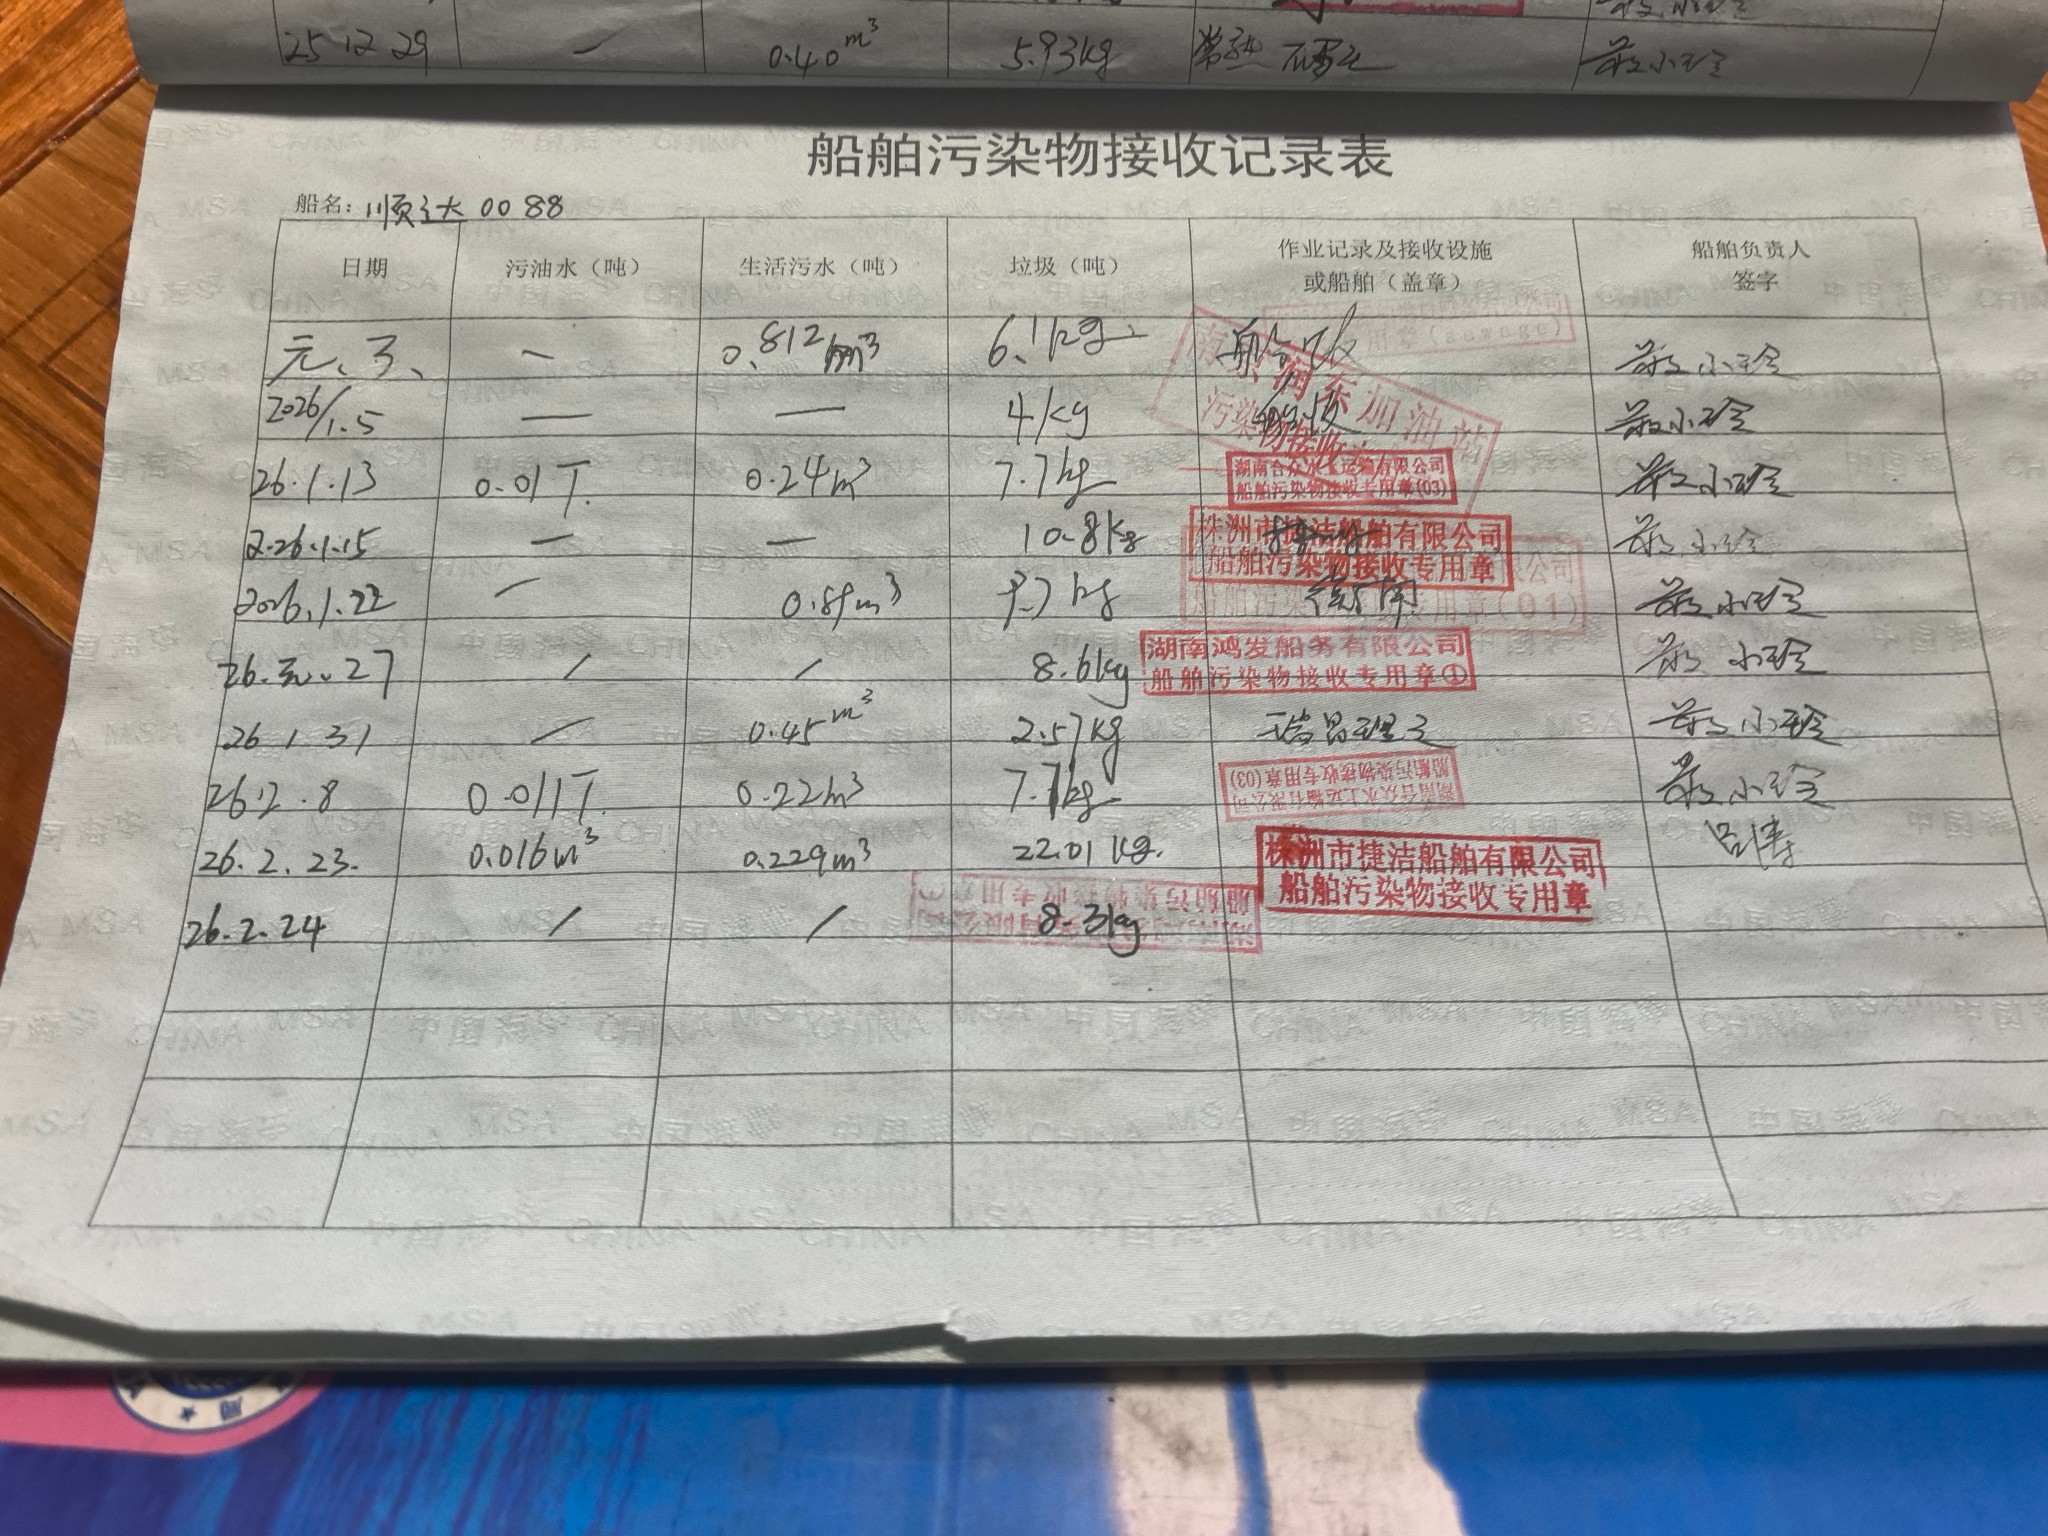 25 12 29 — 0.40 m³ 5.93kg 常熟
船舶污染物接收记录表
船名：顺达 0088
日期 污油水（吨） 生活污水（吨） 垃圾（吨） 作业记录及接收设施或船舶（盖章） 船舶负责人签字
元、3、 — 0.812 m³ 6.1kg
南京润东加油站
污染物接收
用章(sewage)
2026/1.5 — — 4kg
26.1.13 0.01T. 0.24m³ 7.7kg 小玲
湖南合众水上运输有限公司
船舶污染物接收专用章(03)
2.26.1.15 — — 10.8kg 小玲
株洲市捷洁船舶有限公司
船舶污染物接收专用章
2026.1.22 — 0.89m³ 9.7kg 衡阳 小玲
公司
船舶污染 用章(01)
26.元.27 / / 8.6kg 小玲
湖南鸿发船务有限公司
船舶污染物接收专用章①
26 1 31 / 0.45m³ 2.57kg 瑞昌理文 小玲
26.2.8 0.011T. 0.22m³ 7.7kg 小玲
湖南合众水上运输有限公司
船舶污染物接收专用章(03)
26.2.23. 0.016m³ 0.229m³ 22.01kg. 吕涛
株洲市捷洁船舶有限公司
船舶污染物接收专用章
26.2.24 / / 8.3kg
船舶污染物接收专用章①